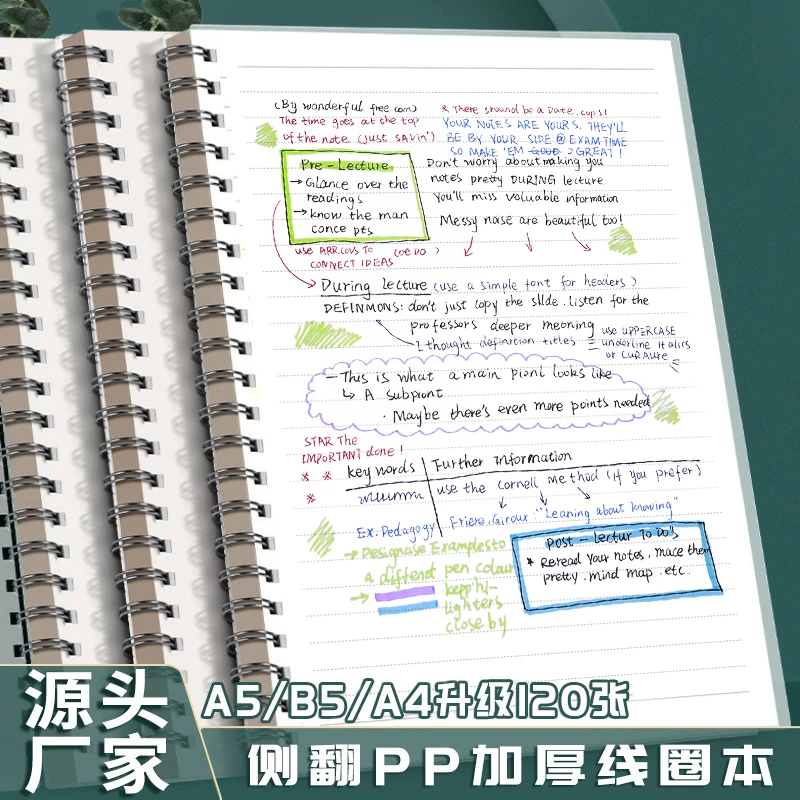 (By wonderful free com)
The time goes at the top
of the note (just savin')
* There sround be a Date.cops!
YOUR NOTES ARE YOURS. THEY'LL
BE BY YOUR SIDE @ EXAM TIME
SO MAKE 'EM GOOD >GREAT!
Pre - Lecture
→ Glance over the
readings
→ know the man
conce pts
Don't worry about making you
notes pretty DURING lecture
You'll miss valuable information
Messy norse are beautiful too!
use ARRCOUS TO (OE DO)
CONNECT IDEAS
During lecture (use a simple font for headers)
DEFINMONS: don't just copy the slide. listen for the
professors deeper meoning
2 thought definition titles = use UPPERCASE
underline Italics
or CURAURE
- This is what a main pionl looks like
↳ A subpront
· Maybe there's even more points needed
STAR The
IMPORTANT done!
* *
*
key words Further Information
use the Cornell method (if you prefer)
Ex: Pedagogy Friere, Giroux. "Leaning about knowing"
→ Designase Examplesto
a diffent pen colour
→ kepp hi-
lighters
close by
Post - Lectur To Do's
* Reread Your notes, mace them
pretty. mind map. etc.
源头
厂家
A5/B5/A4升级120张
侧翻PP加厚线圈本